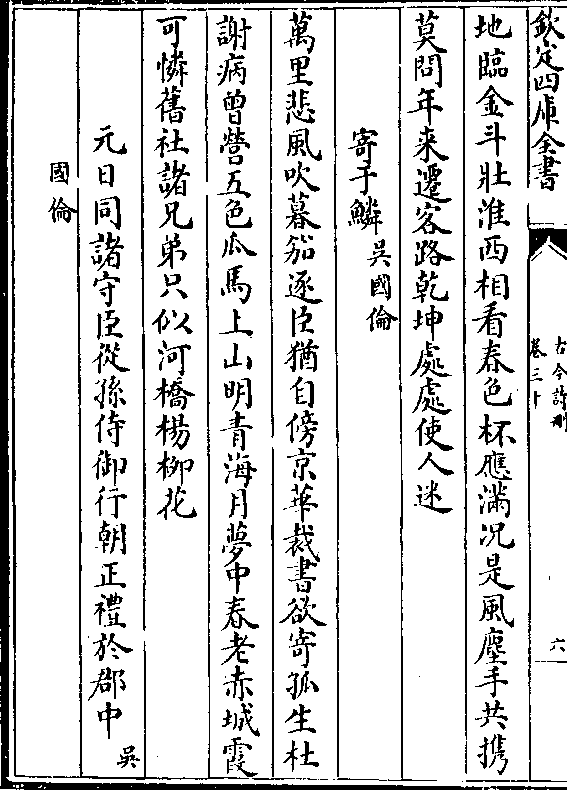 欽定四庫全書
古今詩刪
卷三十
六
地臨金斗壯淮西相看春色杯應滿况是風塵手共携
莫問年来遷客路乾坤處處使人迷
寄于鱗吳國倫
萬里悲風吹暮笳逐臣猶自傍京華裁書欲寄孤生杜
謝病曾營五色瓜馬上山明青海月夢中春老赤城霞
可憐舊社諸兄弟只似河橋楊柳花
元日同諸守臣從孫侍御行朝正禮於郡中吳
國倫